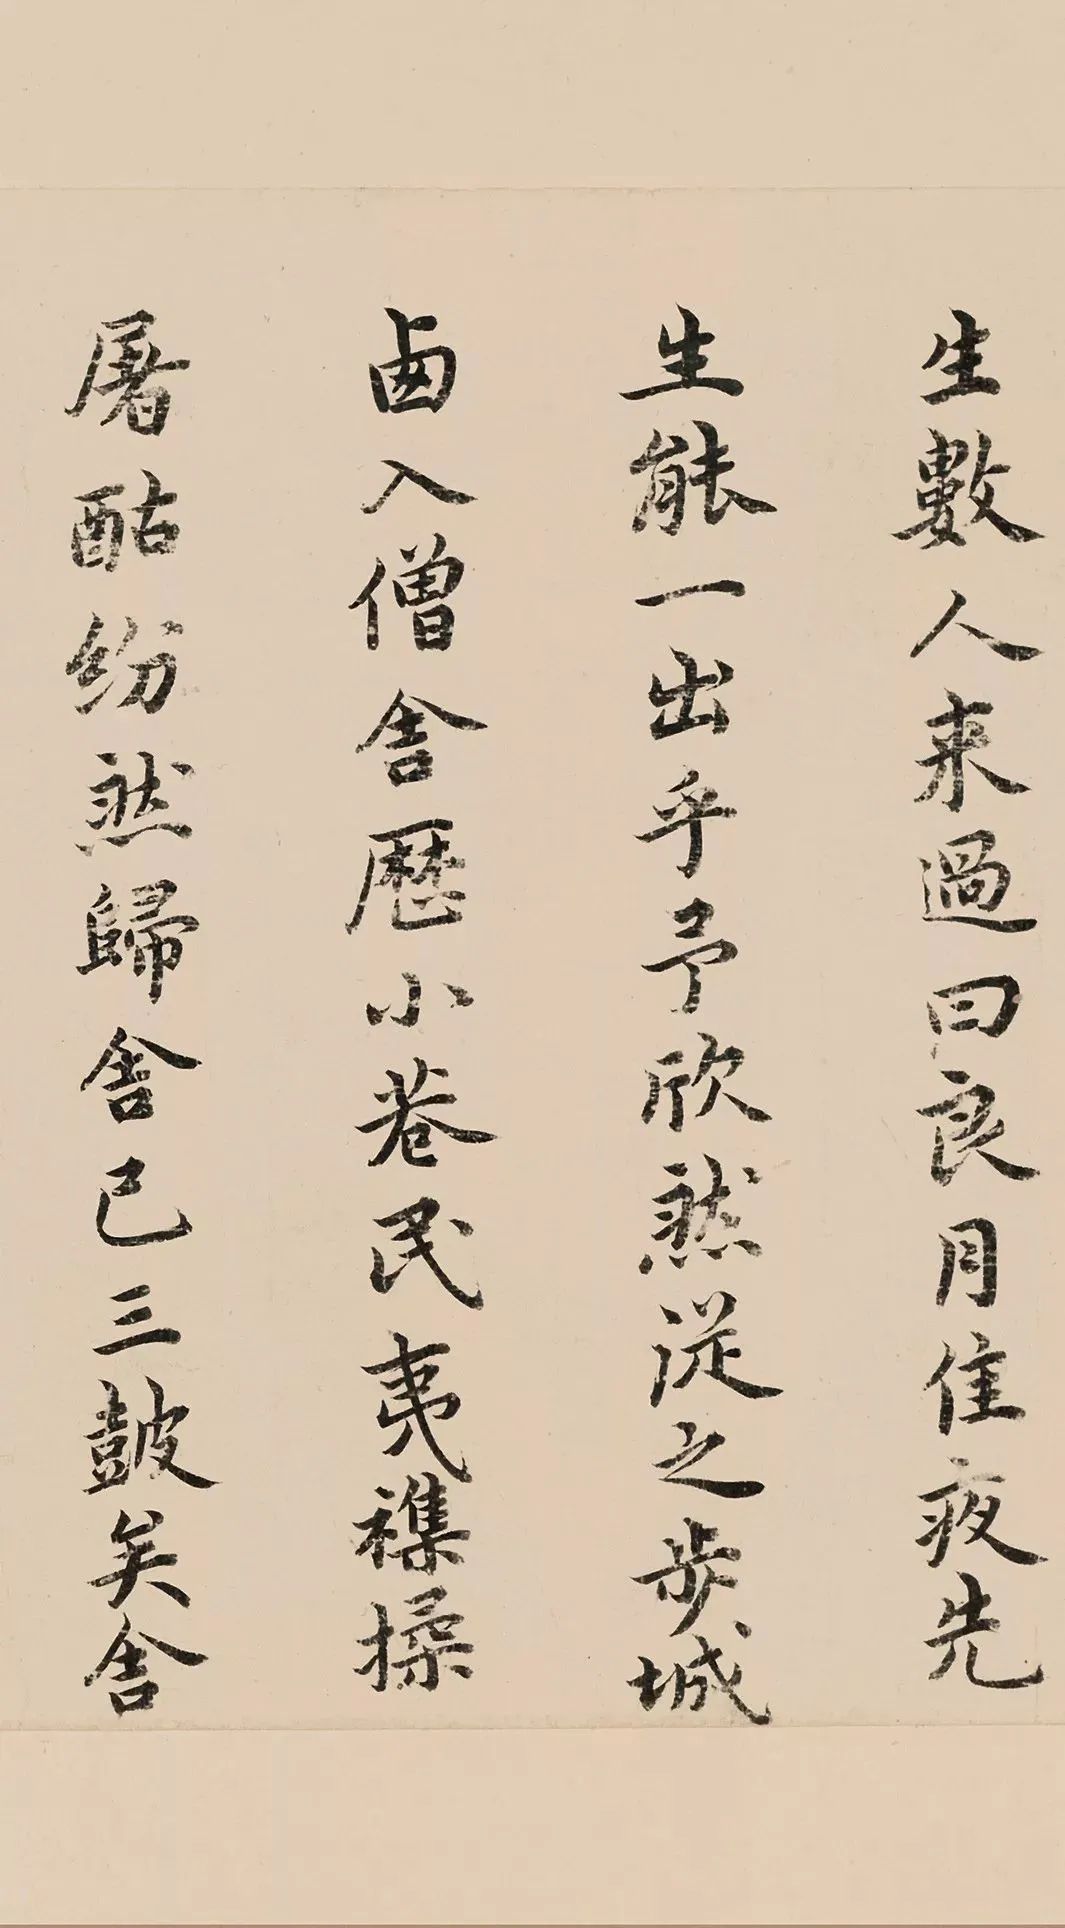 生數人来過曰良月佳夜先
生能一出乎予欣然従之步城
西入僧舍歷小巷民夷雜揉
屠酤紛然歸舍已三鼓矣舍